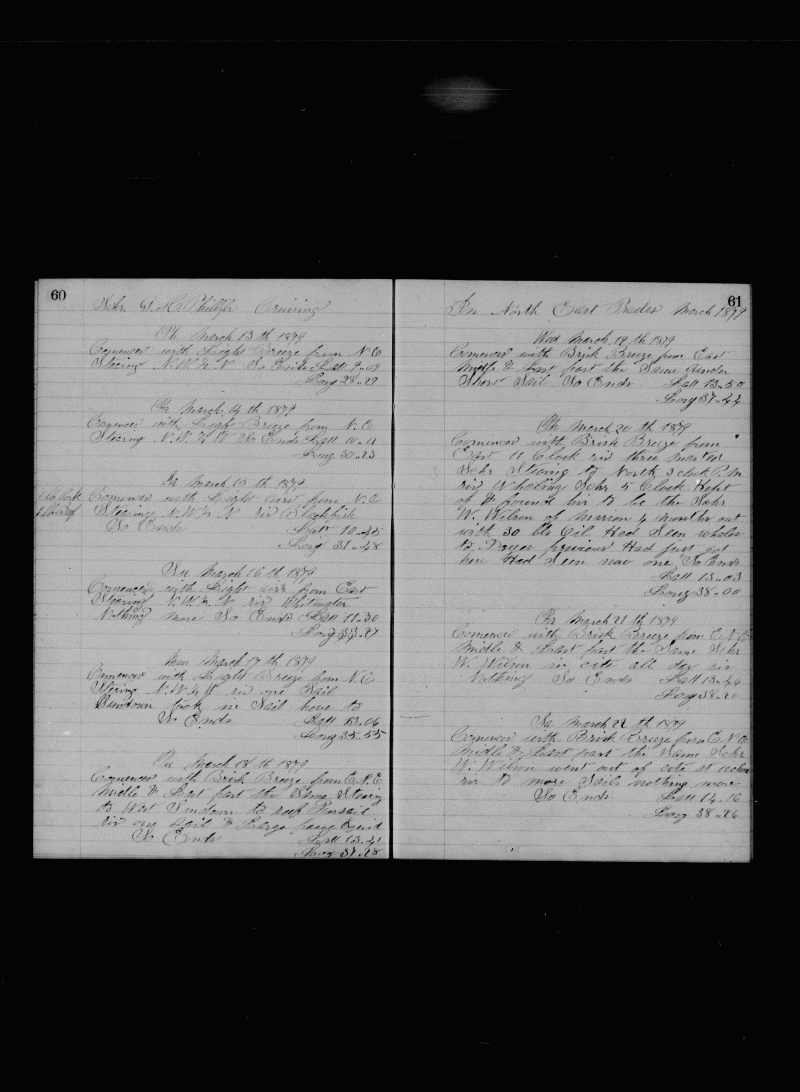 60
Schr W. A. Phillips Cruising
Th March 13 th 1879
Comences with Light Breeze from N. E
Stearing N.W. by N So Ends Latt 9..09
Long 28..29
Fr March 14 th 1879
Comences with Light Breeze from N. E
Stearing N.W. by W So Ends Latt 10..11
Long 30..23
Sa March 15 th 1879
Comences with Light airs from N. E
Stearing N.W by N sid Blackfish
So Ends Latt 10..45
Long 31..48
Su March 16 th 1879
Comences with Light airs from East
Stearing N.W. by N sid
Nothing more So Ends Latt 11..30
Long 33..27
Mon March 17 th 1879
Comences with Light Breeze from N. E
Stearing N.W by W sid one Sail
Sundown took in Sail hove to
So Ends Latt 13.06
Long 35..55
Tu March 18 th 1879
Comences with Brisk Breeze from E.N.E
Midle & Last part the Same Stearing
to West Sundown to reef Foresail
sid one Sail & Large
So Ends Latt 13..41
Long 37..28
61
In North East Trades March 1879
Wed March 19 th 1879
Comences with Brisk Breeze from East
Midle & Last part the Same under
Short Sail So Ends Latt 13..50
Long 37..42
Th March 20 th 1879
Comences with Brisk Breeze from
East 11 Clock sid three master
Schr Stearing to North 3 clock P.M
sid Whaling Schr 5 Clock Kept
of & found hir to be the Schr
W. Wilson of Marion 4 months out
with 30 bls Oil Had Seen whales
to Dayes previous Had just got
here Had Seen now one So Ends
Latt 13..03
Long 38..00
Fr March 21 th 1879
Comences with Brisk Breeze from E. N. E
Midle & Last part the Same Schr
W. Wilson in cite all day sid
Nothing So Ends Latt 13..46
Long 38..20
Sa March 22 th 1879
Comences with Brisk Breeze from E. N. E
Midle & Last part the Same Schr
W. Wilson went out of cite at 11 clock
sid to more Sails nothing more
So Ends Latt 14..16
Long 38..26